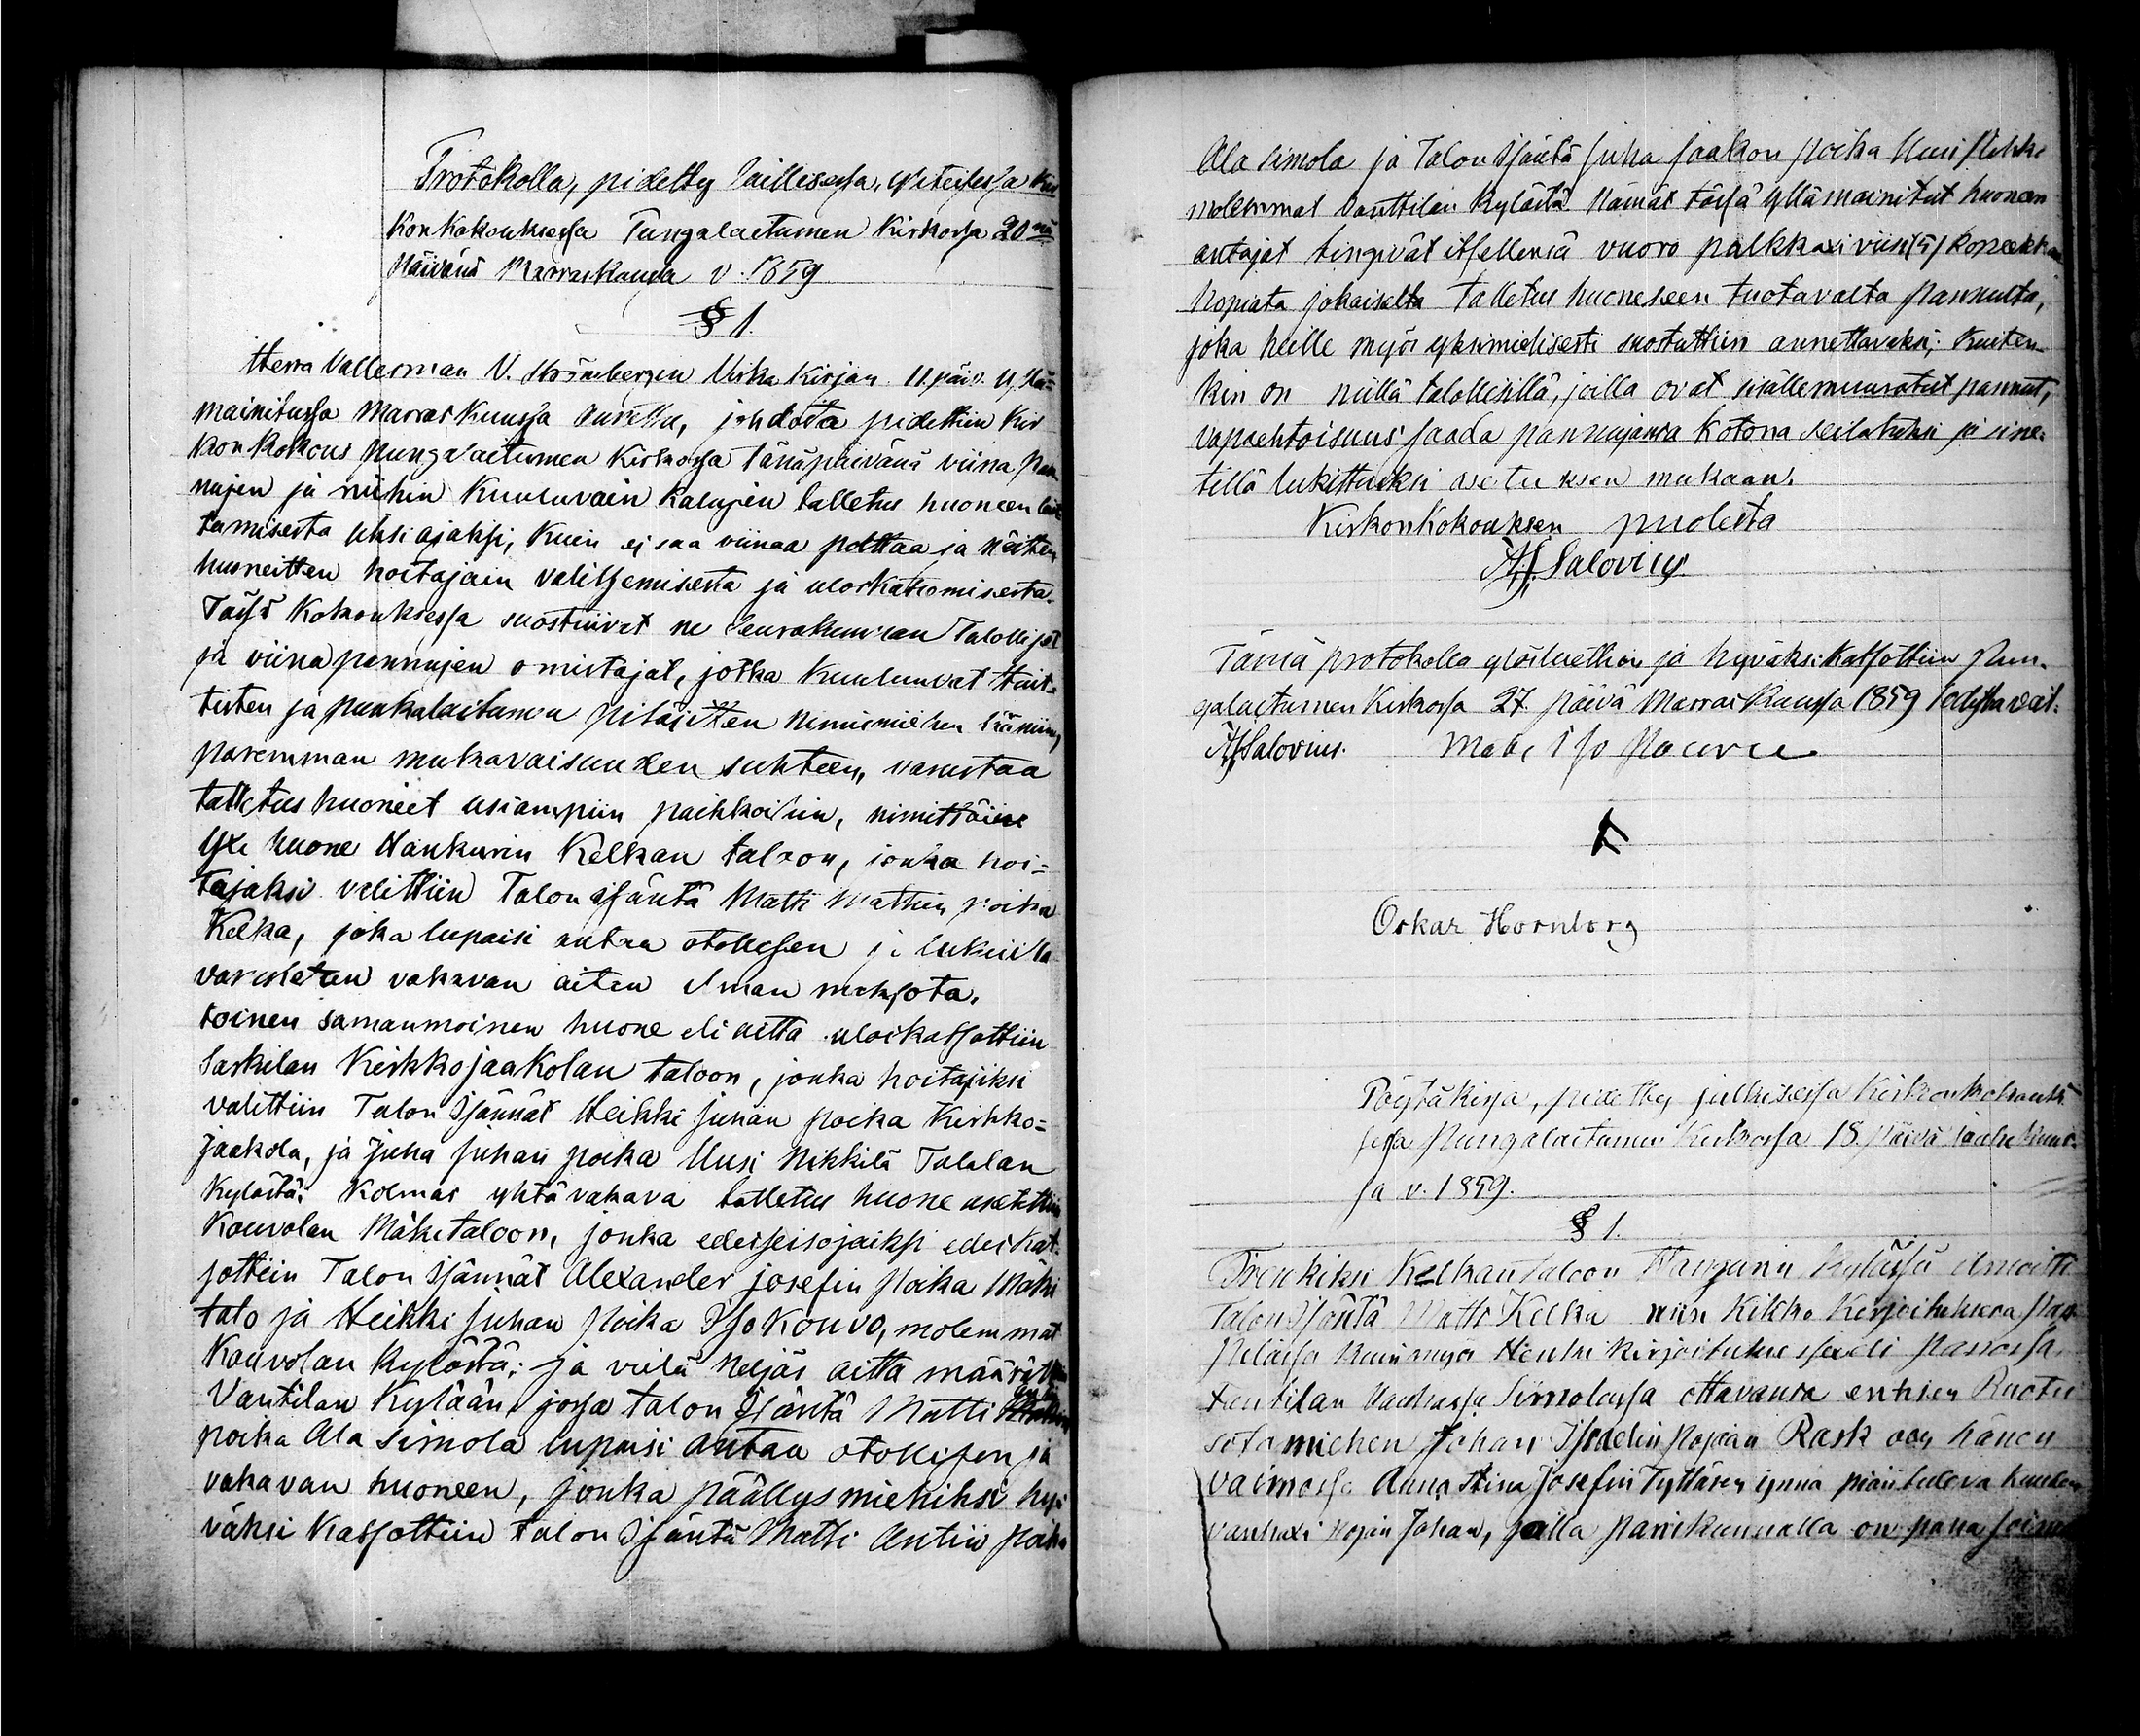 Protokolla, pidetty laillisessa, yhteisessa Kir
Konkokouksessa Pungalaetumen Kirkossa 20 nä
Päivänä Marraskuussa v. 1859
§ 1.
Herra Vallesman V. Strömbergin Virka Kirjan 11. päiv.
mainitussa Marraskuussa, johdosta pidettiin Kir
konkokous pungalaitumen Kirkossa tänäpäivänä viina Pan
nujen ja niihin Kuuluvain Kalujen talletus huoneen lait
tamisesta siksi ajaksi, Kuin ej saa viinaa polttaa ja näitten
huoneitten hoitajain valitsemisesta ja uloskatsomisesta.
Tässä Kokouksessa suostuivat ne Seurakunnan Talollijat
ja viina pannujen omistajat, jotka Kuuluuvat
ja punkalaitumen pitäjitten Nimismiehen lääniin,
paremman mukavaisuuden suhteen, varustaa
talletus huoneet usiampiin paikkoihin, nimittäin
yxi huone Hankurin Kelkan taloon, jonka hoi=
tajaksi valittiin Talon isäntä Matti Mattin poika
Kelka, joka lupaisi antaa otollisen ja lukuilla
varustetun vakavan aitan ilman maksota.
toinen samanmoinen huone eli aitta uloskatsottiin
Sarkilan Kirkkojaakolan taloon, jonka hoitajiksi
valittiin Talon Isännät Heikki Juhan poika Kirkko=
jaakola, ja Juha Juhan poika Uusi Nikkilä Talalan
Kylästä: Kolmas yhtä vakava talletus huone asetettiin
Kouvolan Mäkitaloon, jonka edesseisojaiksi edeskat
sottiin Talon Isännät Alexander josefin Poika Mäki
talo ja Heikki Juhan Poika Iso Kouvo, molemmat
Kouvolan Kylästä: ja vielä Neljäs aitta määrättiin
Vantilan Kylään, jossa talon Isäntä Matti
poika Ala Simola lupaisi antaa otollisen ja
vakavan huoneen, jonka päällysmiehiksi hy
väksi Katsottiin talon Isäntä Matti Antin Poika
Ala Simola ja Talon Isäntä Juha Jaakon Poika Uusi
molemmat Vanttilan Kylästä Nämät tässä yllä mainitut huoneen
antajat tingivät itsellensä vuoro palkkaxi viisi /5/ kopeekkaa
hopiata jokaiselta talletus huoneseen tuotavalta pannulta,
joka heille myös yksimielisesti suostuttiin annettavaksi; Kuiten-
kin on niillä talollisilla, joilla ovat sisällemuuratut pannut,
vapaehtoisuus saada pannujansa Kotona seilatuksi ja sine-
tillä lukittuiksi asetuksen mukaan.
KirkonKokouksen puolesta
A J Salovius
Tämä protokolla ylösluettiin ja hyväksi Katsottiin Pun-
galaetumen Kirkossa 27. päivä Marraskuussa 1859
A J Salovius. Matti Iso Pauvu
Oskar Hornborg
Pöytäkirja, pidetty julkisessa Kirkonkokouk
sessa Pungalaitumen Kirkossa 18. päivä joulukuus
sa v. 1859.
§ 1.
Trenkiksi Kelkan taloon Hangurin Kylässä ilmoitti
Talon Isäntä Matti Kelka niin Kikko Kirjoituksera
Pitäisä Kuin myös Henki kirjoituksessa
Vantilan Simolassa ottavansa entisen Ruotu
sotamiehen Johan Isodelin Pojan Rask
vaimossa Anna Stina Josefin Tyttären ynnä pian tuleva Kuuden
vanhaxi Pojan Johan, jolla pariskunnalla on